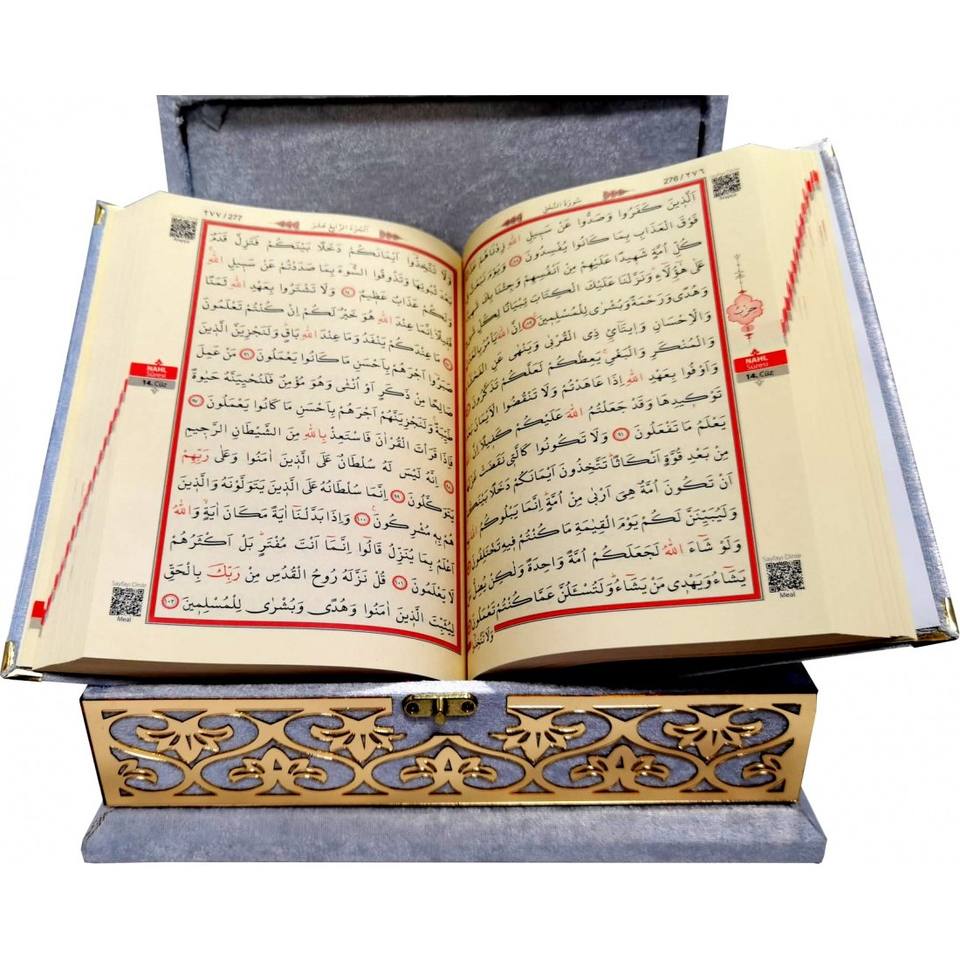 276 / ٢٧٦
سُورَةُ النَّحْلِ
اَلَّذِينَ كَفَرُوا وَصَدُّوا عَنْ سَبِيلِ اللّٰهِ زِدْنَاهُمْ
فَوْقَ الْعَذَابِ بِمَا كَانُوا يُفْسِدُونَ ﴿٨٨﴾ وَيَوْمَ
كُلِّ اُمَّةٍ شَهِيدًا عَلَيْهِمْ مِنْ اَنْفُسِهِمْ وَجِئْنَا بِكَ
عَلٰى هٰٓؤُ۬لَٓاءِ وَنَزَّلْنَا عَلَيْكَ الْكِتَابَ تِبْيَانًا لِكُلِّ
وَهُدًى وَرَحْمَةً وَبُشْرٰى لِلْمُسْلِمِينَ ﴿٨٩﴾ اِنَّ اللّٰهَ يَأْمُرُ
وَالْاِحْسَانِ وَاِيتَٓائِ ذِي الْقُرْبٰى وَيَنْهٰى عَنِ
وَالْمُنْكَرِ وَالْبَغْيِ يَعِظُكُمْ لَعَلَّكُمْ تَذَكَّرُونَ
وَاَوْفُوا بِعَهْدِ اللّٰهِ اِذَا عَاهَدْتُمْ وَلَا تَنْقُضُوا الْاَيْمَانَ
تَوْكِيدِهَا وَقَدْ جَعَلْتُمُ اللّٰهَ عَلَيْكُمْ كَفِيلًا
يَعْلَمُ مَا تَفْعَلُونَ ﴿٩١﴾ وَلَا تَكُونُوا كَالَّتِي نَقَضَتْ
مِنْ بَعْدِ قُوَّةٍ اَنْكَاثًا تَتَّخِذُونَ اَيْمَانَكُمْ دَخَلًا بَيْنَكُمْ
اَنْ تَكُونَ اُمَّةٌ هِيَ اَرْبٰى مِنْ اُمَّةٍ اِنَّمَا يَبْلُوكُمُ اللّٰهُ
وَلَيُبَيِّنَنَّ لَكُمْ يَوْمَ الْقِيٰمَةِ مَا كُنْتُمْ فِيهِ تَخْتَلِفُونَ
وَلَوْ شَٓاءَ اللّٰهُ لَجَعَلَكُمْ اُمَّةً وَاحِدَةً وَلٰكِنْ يُضِلُّ
يَشَٓاءُ وَيَهْدِي مَنْ يَشَٓاءُ وَلَتُسْـَٔلُنَّ عَمَّا كُنْتُمْ تَعْمَلُونَ
وَلَا تَتَّخِذُوا
حزب
NAHL
Sûresi
14. Cüz
Sayfayı Dinle
Meal
٢٧٧ / 277
اَلْجُزْءُ الرَّابِعَ عَشَرَ
وَلَا تَتَّخِذُٓوا اَيْمَانَكُمْ دَخَلًا بَيْنَكُمْ فَتَزِلَّ قَدَمٌ
بَعْدَ ثُبُوتِهَا وَتَذُوقُوا السُّٓوءَ بِمَا صَدَدْتُمْ عَنْ سَبِيلِ اللّٰهِ
وَلَكُمْ عَذَابٌ عَظِيمٌ ﴿٩٤﴾ وَلَا تَشْتَرُوا بِعَهْدِ اللّٰهِ ثَمَنًا
قَلِيلًا اِنَّمَا عِنْدَ اللّٰهِ هُوَ خَيْرٌ لَكُمْ اِنْ كُنْتُمْ تَعْلَمُونَ
﴿٩٥﴾ مَا عِنْدَكُمْ يَنْفَدُ وَمَا عِنْدَ اللّٰهِ بَاقٍ وَلَنَجْزِيَنَّ الَّذِينَ
صَبَرُٓوا اَجْرَهُمْ بِاَحْسَنِ مَا كَانُوا يَعْمَلُونَ ﴿٩٦﴾ مَنْ عَمِلَ
صَالِحًا مِنْ ذَكَرٍ اَوْ اُنْثٰى وَهُوَ مُؤْمِنٌ فَلَنُحْيِيَنَّهُ حَيٰوةً
طَيِّبَةً وَلَنَجْزِيَنَّهُمْ اَجْرَهُمْ بِاَحْسَنِ مَا كَانُوا يَعْمَلُونَ ﴿٩٧﴾
فَاِذَا قَرَأْتَ الْقُرْاٰنَ فَاسْتَعِذْ بِاللّٰهِ مِنَ الشَّيْطَانِ الرَّجِيمِ
﴿٩٨﴾ اِنَّهُ لَيْسَ لَهُ سُلْطَانٌ عَلَى الَّذِينَ اٰمَنُوا وَعَلٰى رَبِّهِمْ
يَتَوَكَّلُونَ ﴿٩٩﴾ اِنَّمَا سُلْطَانُهُ عَلَى الَّذِينَ يَتَوَلَّوْنَهُ وَالَّذِينَ
هُمْ بِهِ مُشْرِكُونَ ﴿١٠٠﴾ وَاِذَا بَدَّلْنَٓا اٰيَةً مَكَانَ اٰيَةٍ وَاللّٰهُ
اَعْلَمُ بِمَا يُنَزِّلُ قَالُٓوا اِنَّمَٓا اَنْتَ مُفْتَرٍ بَلْ اَكْثَرُهُمْ
لَا يَعْلَمُونَ ﴿١٠١﴾ قُلْ نَزَّلَهُ رُوحُ الْقُدُسِ مِنْ رَبِّكَ بِالْحَقِّ
لِيُثَبِّتَ الَّذِينَ اٰمَنُوا وَهُدًى وَبُشْرٰى لِلْمُسْلِمِينَ ﴿١٠٢﴾
NAHL
Sûresi
14. Cüz
Sayfayı Dinle
Meal